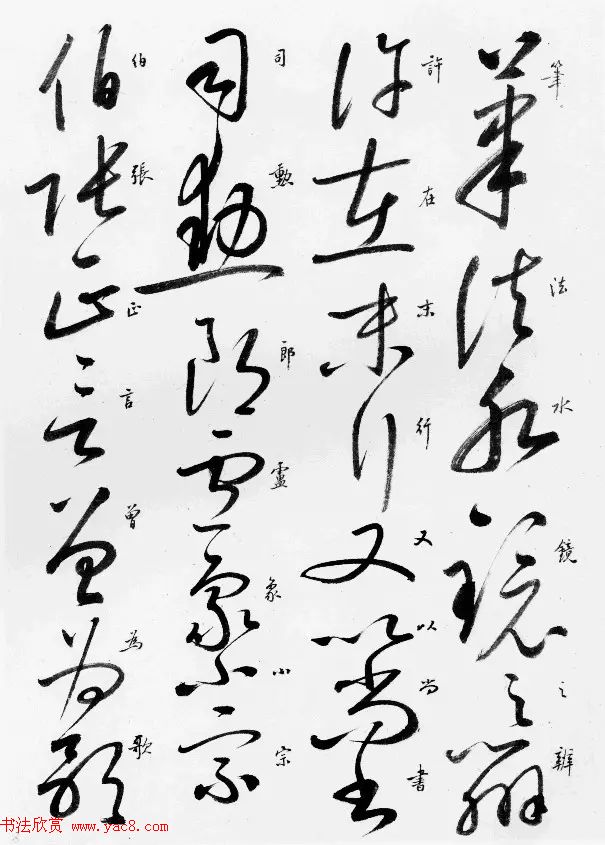 筆法水鏡之辨
許在末行又以尚書
司勲郎盧象小宗
伯張正言曾為歌
书法欣赏 www.yac8.com